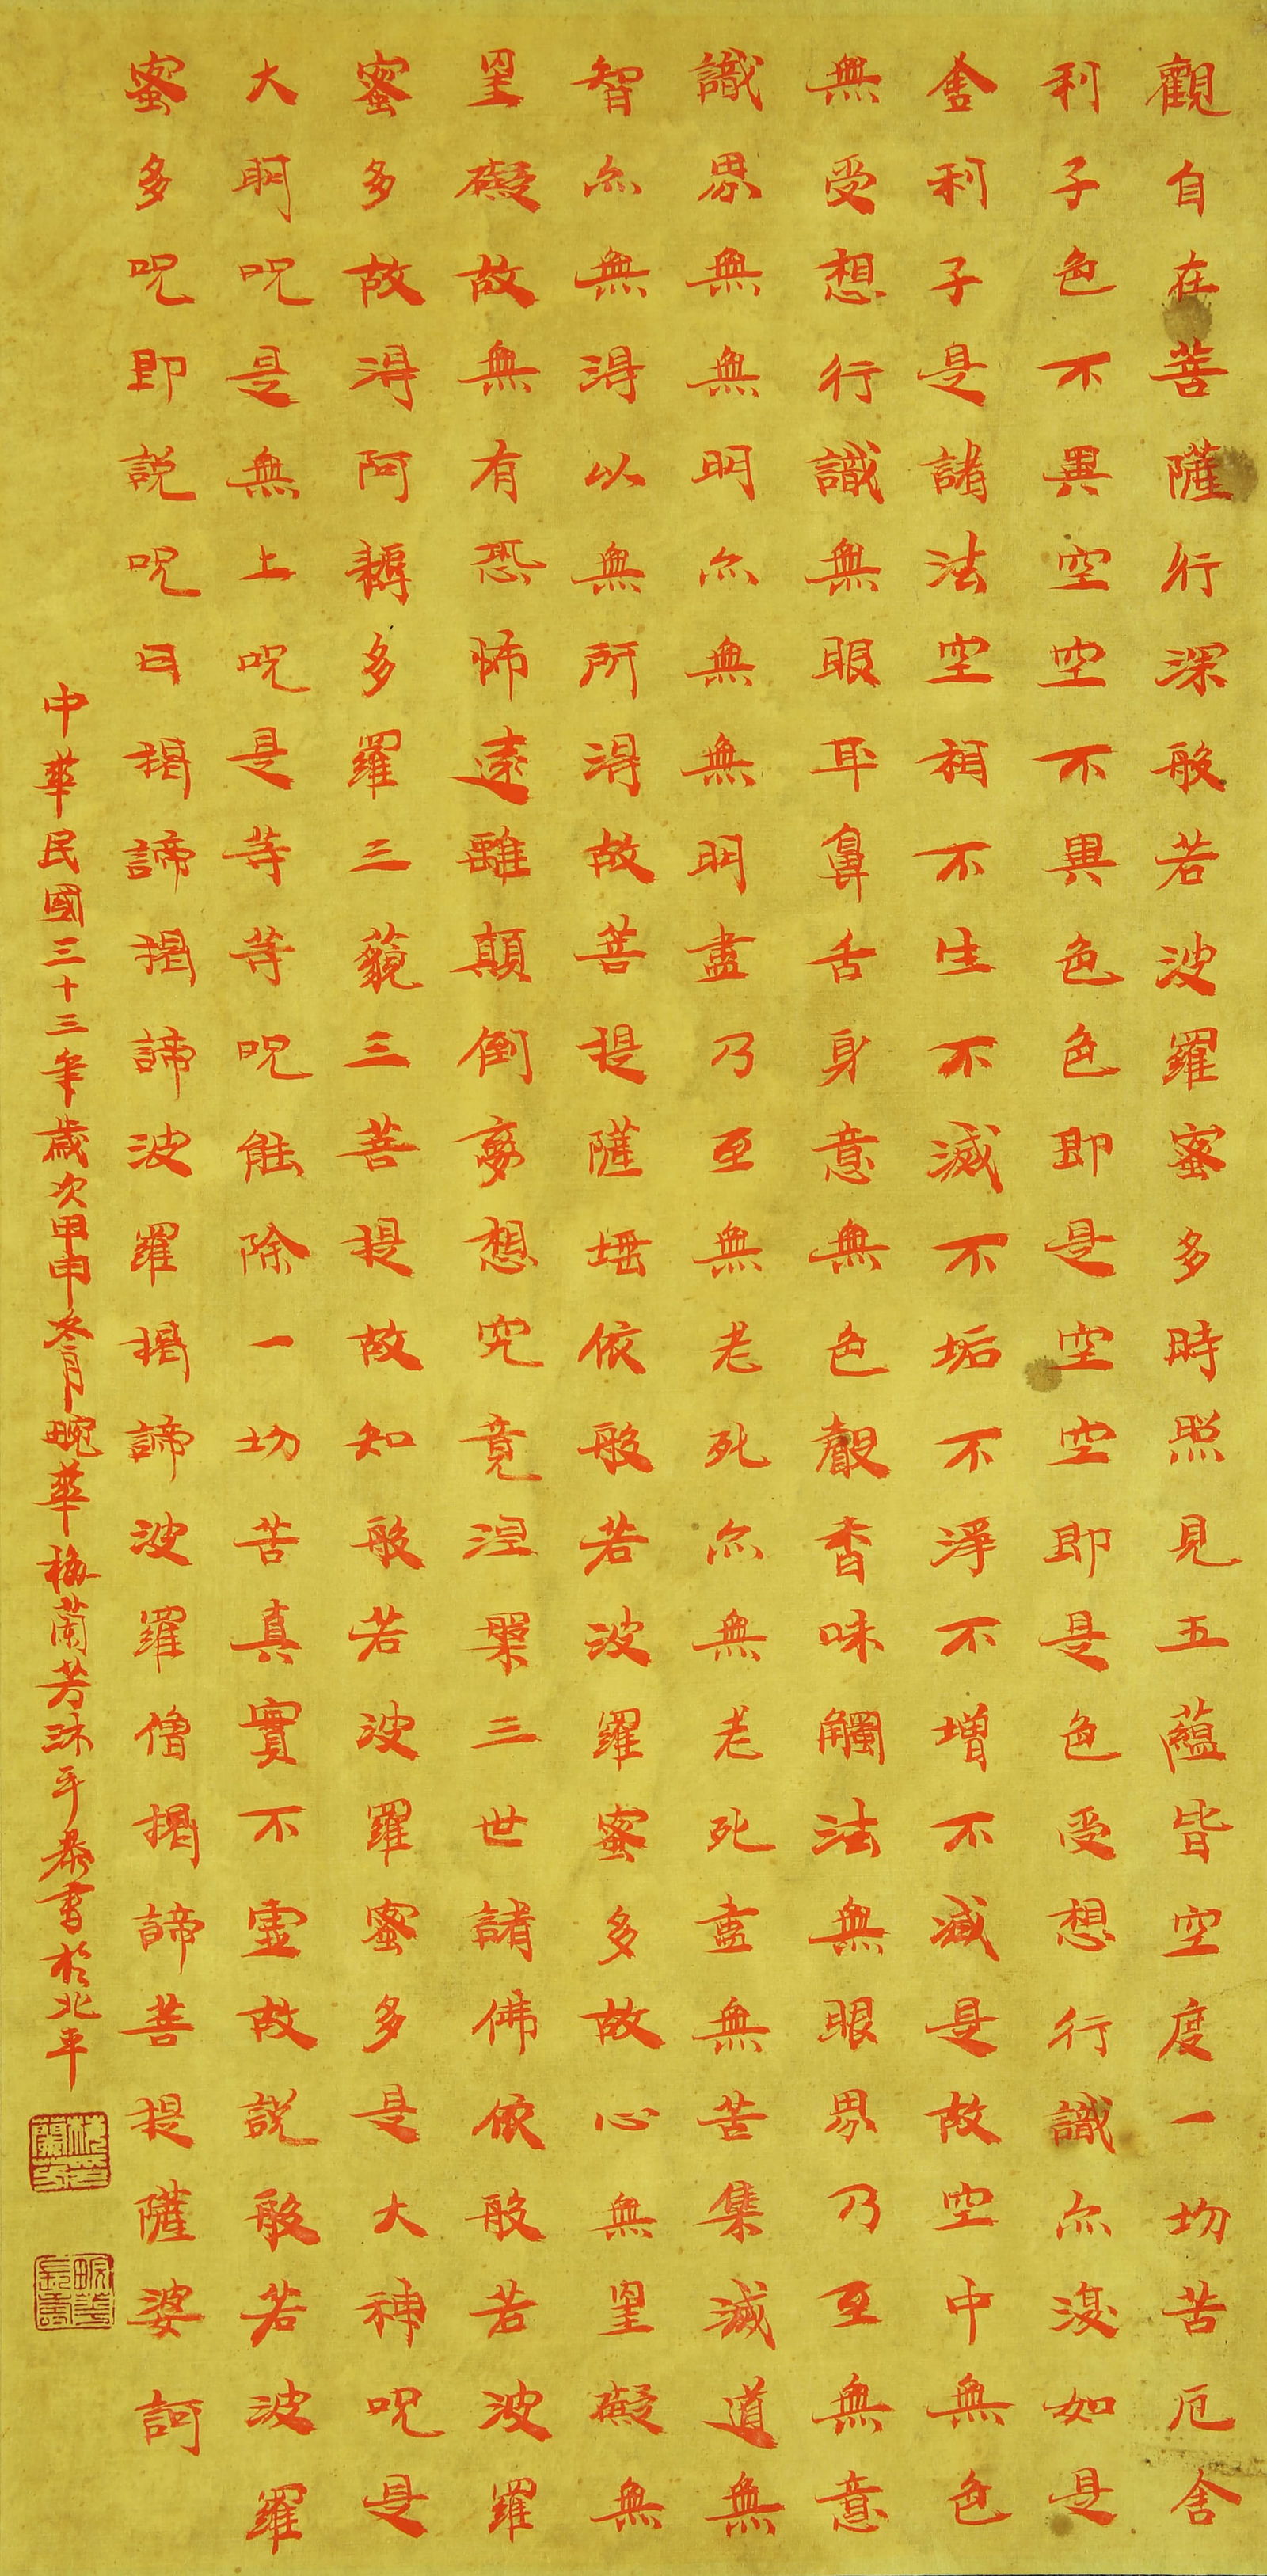 觀自在菩薩行深般若波羅蜜多時照見五蘊皆空度一切苦厄舍
利子色不異空空不異色色即是空空即是色受想行識亦復如是
舍利子是諸法空相不生不滅不垢不淨不增不減是故空中無色
無受想行識無眼耳鼻舌身意無色聲香味觸法無眼界乃至無意
識界無無明亦無無明盡乃至無老死亦無老死盡無苦集滅道無
智亦無得以無所得故菩提薩埵依般若波羅蜜多故心無罣礙無
罣礙故無有恐怖遠離顛倒夢想究竟涅槃三世諸佛依般若波羅
蜜多故得阿耨多羅三藐三菩提故知般若波羅蜜多是大神咒是
大明咒是無上咒是等等咒能除一切苦真實不虛故說般若波羅
蜜多咒即説咒曰揭諦揭諦波羅揭諦波羅僧揭諦菩提薩婆訶
中華民國三十三年歲次甲申冬月畹華梅蘭芳沐手恭書於北平
梅蘭芳
畹華